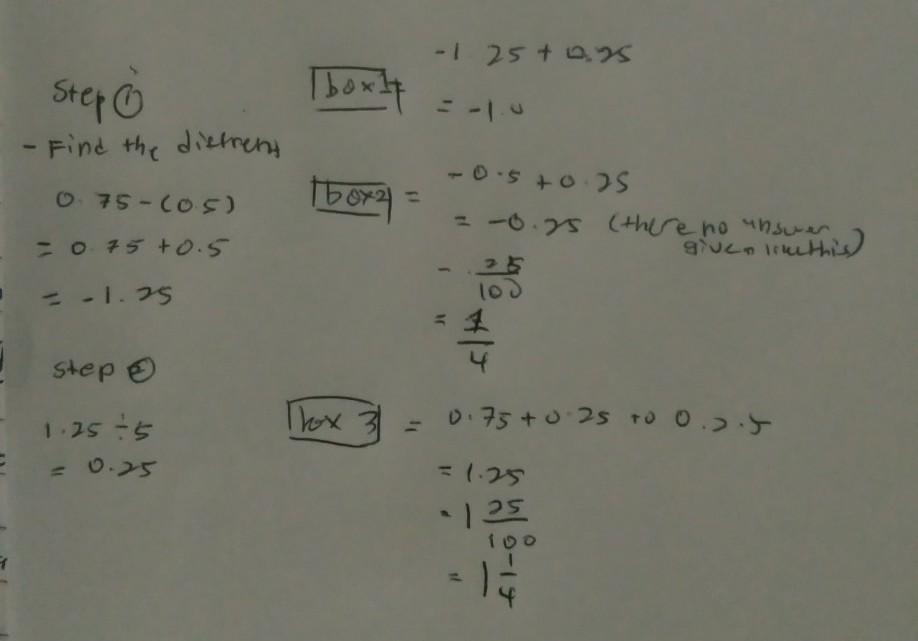 Step ①
- Find the
0.75-(05)
= 0.75+0.5
= -1.25
step ②
1.25÷5
= 0.25
box 1
-1 25+0.25
= -1.0
box2 = -0.5+0.25
= -0.25 (there no answer given like this)
- 25/100
= 1/4
box 3 = 0.75+0.25 +0 0.2.5
= 1.25
= 1 25/100
= 1 1/4